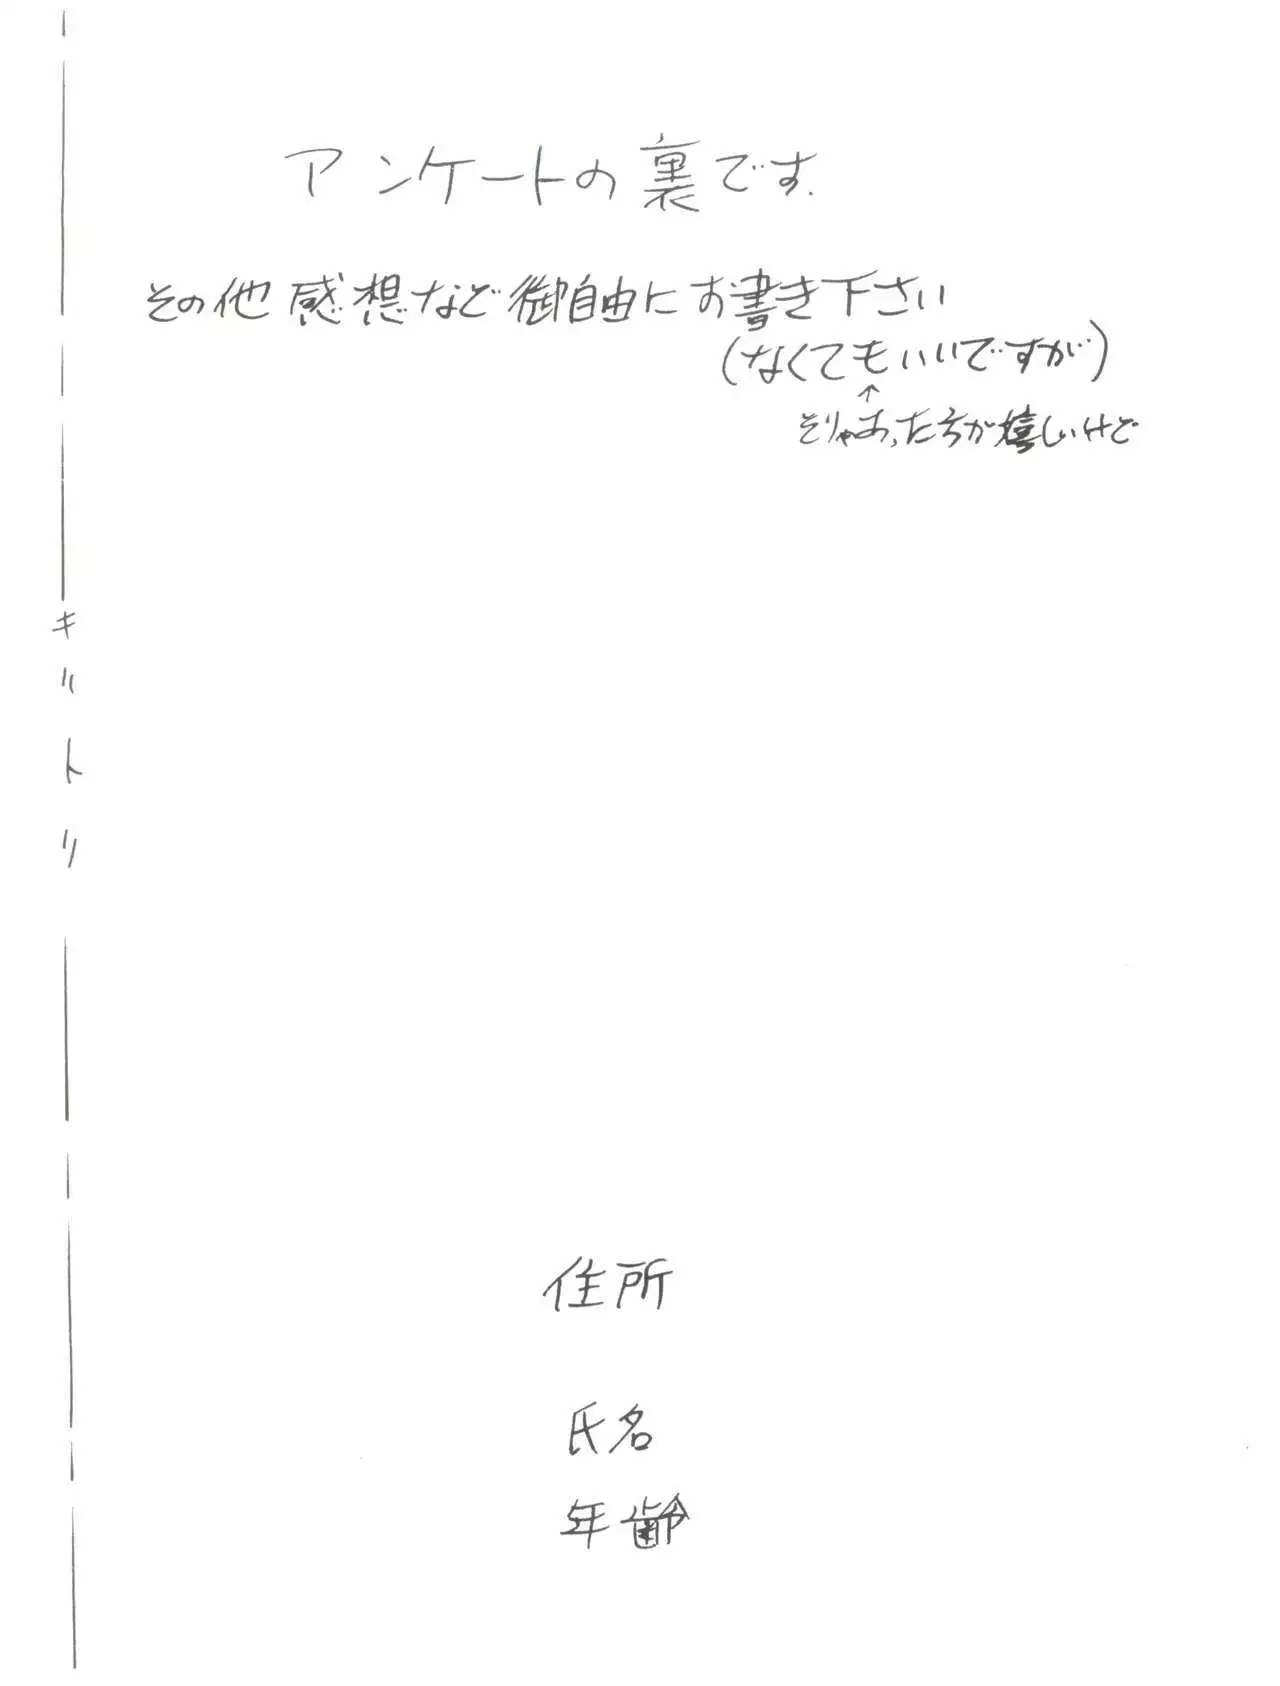 アンケートの裏です.
その他感想など御自由にお書き下さい
(なくてもいいですが)
↑
そりゃあったら方が嬉しいけど
キリトリ
住所
氏名
年齢